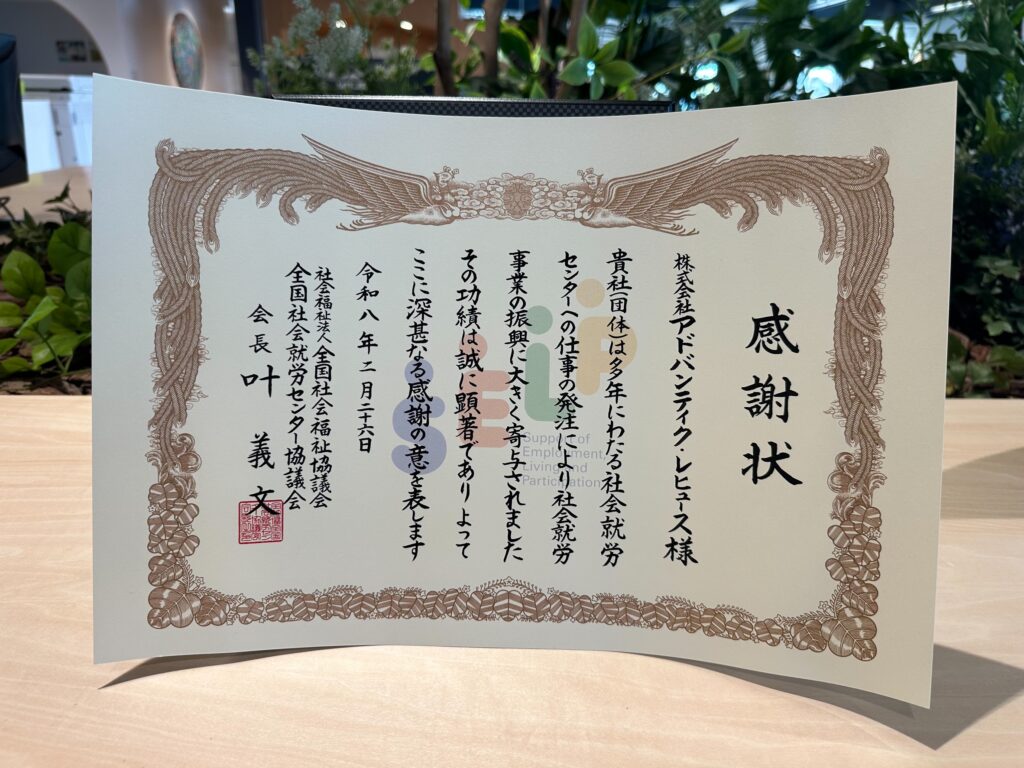 感謝状
株式会社アドバンティク・レヒュース様
貴社(団体)は多年にわたる社会就労
センターへの仕事の発注により社会就労
事業の振興に大きく寄与されました
その功績は誠に顕著でありよって
ここに深甚なる感謝の意を表します
令和八年二月二十六日
社会福祉法人全国社会福祉協議会
全国社会就労センター協議会
会長 叶義文
SELP
Support of
Employment,
Living and
Participation